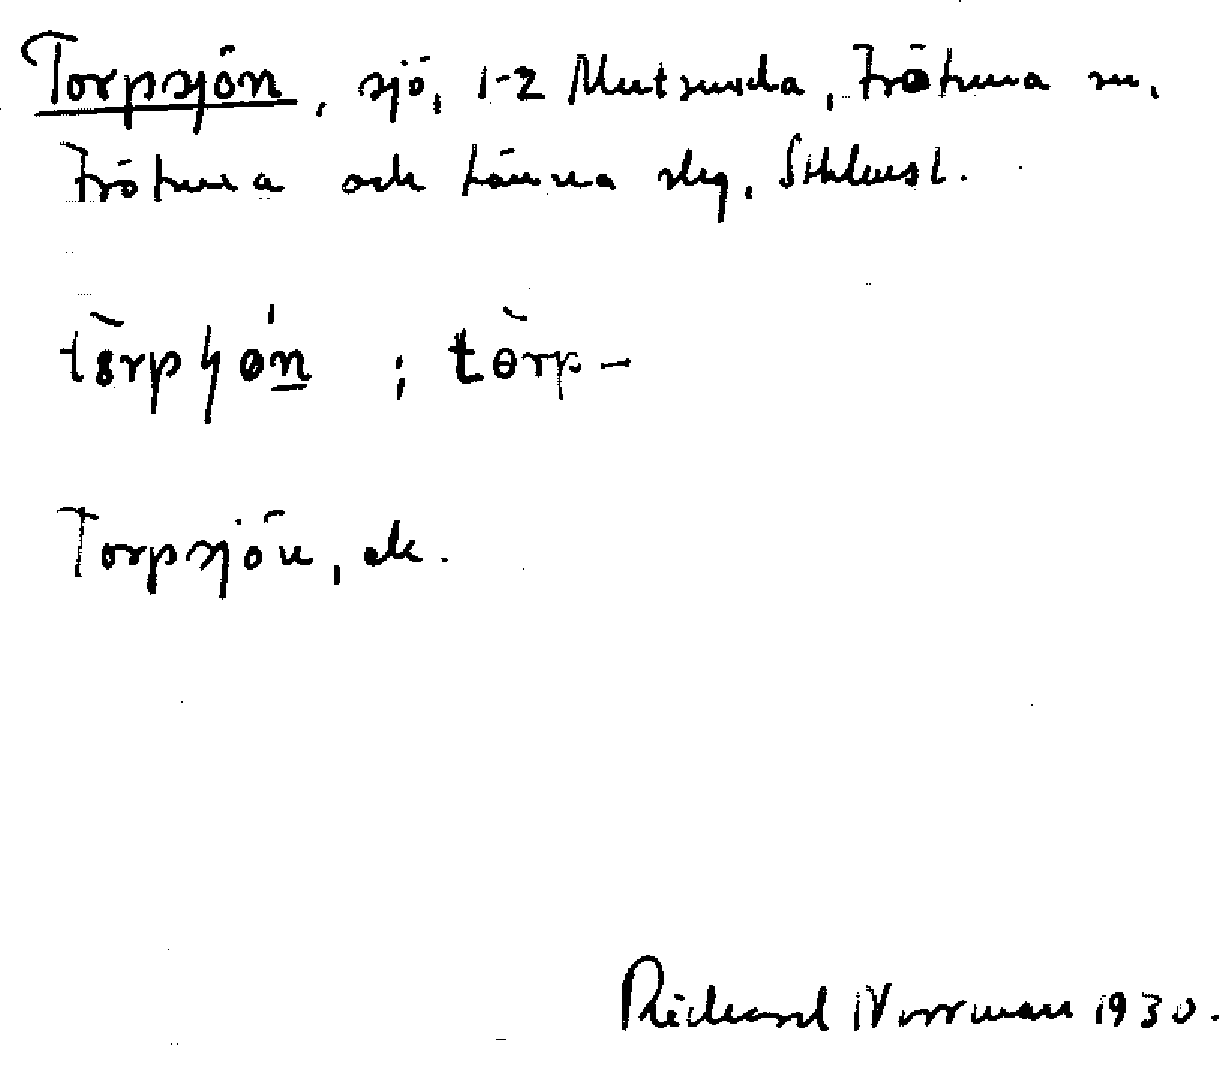 Torpsjön, sjö, 1-2 Mutsunda, Frötuna sn,
Frötuna och Länna slg, Sthlmsl.
tòrpʃøn ; tòrp-
Torpsjön, ek.
Rickard Norrman 1930.